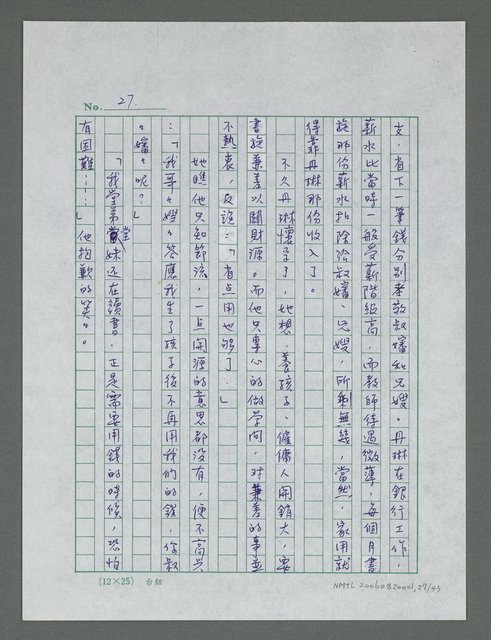 No. 27.
支，省下一筆錢分別孝敬叔嬸和兄嫂。丹琳在銀行工作，
薪水比當時一般受薪階級高，而教師待遇微薄，每個月書
旋那份薪水扣除給叔嬸、兄嫂，所剩無幾，當然，家用就
得靠丹琳那份收入了。
不久丹琳懷孕了，她想，養孩子、僱傭人開銷大，要
書旋兼差以闢財源。而他只專心的做学问，对兼差的事並
不熱衷，反說：「省点用也够了.」
她瞧他只知節流，一点開源的意思都没有，便不高兴
：「我哥々嫂々答應我生了孩子後不再用我们的錢，你叔
々嬸々呢？」
「我堂弟堂妹还在讀書，正是需要用錢的時候，恐怕
有困難……」他抱歉的笑々。
(12×25) 台細
NMTL 20060820001, 27/43